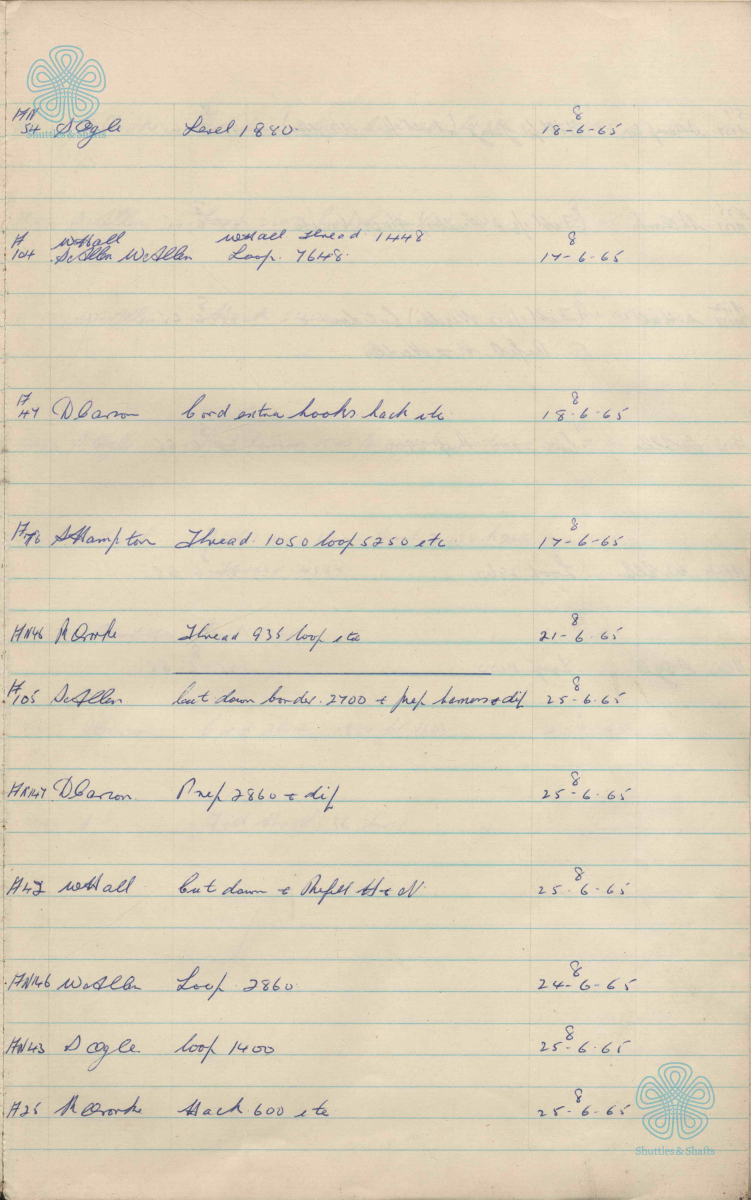 HN 8
54 S Ogle Level 1880. 18-6-65
Shuttles & Shafts
H W Hall W Hall Thread 1448 8
104 Sc Allen W Allen Loop. 7648. 17-6-65
H 8
47 D Carson Cord extra hooks hack etc 18-6-65
H 8
78 S Hampton Thread. 1050 loop 5250 etc 17-6-65
8
HN46 R Ororke Thread 935 loop etc 21-6-65
H 8
105 Sc Allen Cut down border. 2700 + prep + dif 25-6-65
8
147 D Carson. Prep 2860 + dif 25-6-65
8
H42 W Hall Cut down + Refill H + N. 25-6-65
8
HN146 W Allen Loop. 2860. 24-6-65
8
HN43 S Ogle. loop 1400 25-6-65
8
H25 R Ororke Hack 600 etc 25-6-65
Shuttles & Shafts